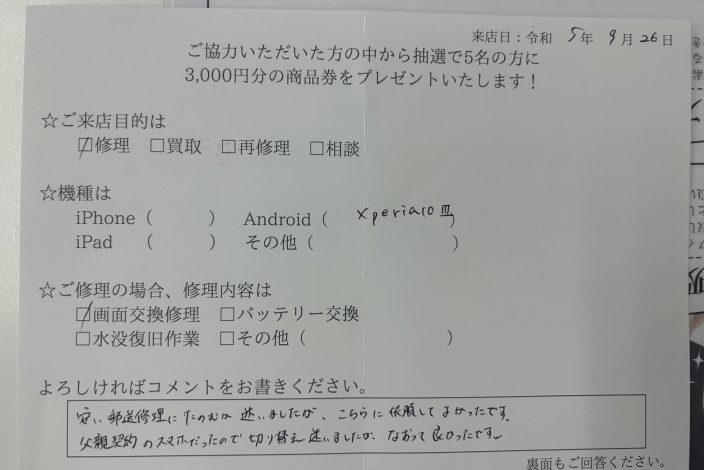 来店日：令和 5年 9月 26日
ご協力いただいた方の中から抽選で5名の方に
3,000円分の商品券をプレゼントいたします！
☆ご来店目的は
☑修理 □買取 □再修理 □相談
☆機種は
iPhone（ ） Android（ Xperia10 Ⅲ ）
iPad （ ） その他（ ）
☆ご修理の場合、修理内容は
☑画面交換修理 □バッテリー交換
□水没復旧作業 □その他（ ）
よろしければコメントをお書きください。
安い郵送修理にたのむか迷いましたが、こちらに依頼してよかったです。
父親契約のスマホだったので切り替え迷いましたが、なおって良かったです。
裏面もご回答ください。